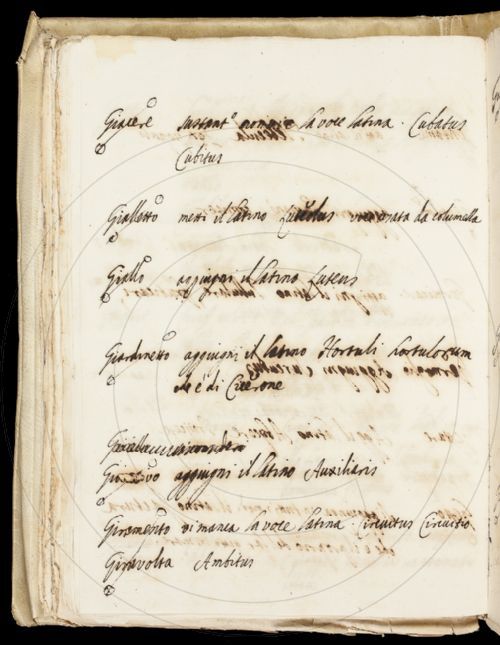 Giacere sustant.o la voce latina. Cubatus
Cubitus
Gialletto metti il latino Luteolus da columella
Giallo aggiugni il latino Luteus
Giardinetto aggiugni il latino Hortuli hortulorum
di Cicerone
aggiugni il latino Auxiliaris
Giramento vi manca la voce latina. Circuitus Circuitio
Giravolta Ambitus